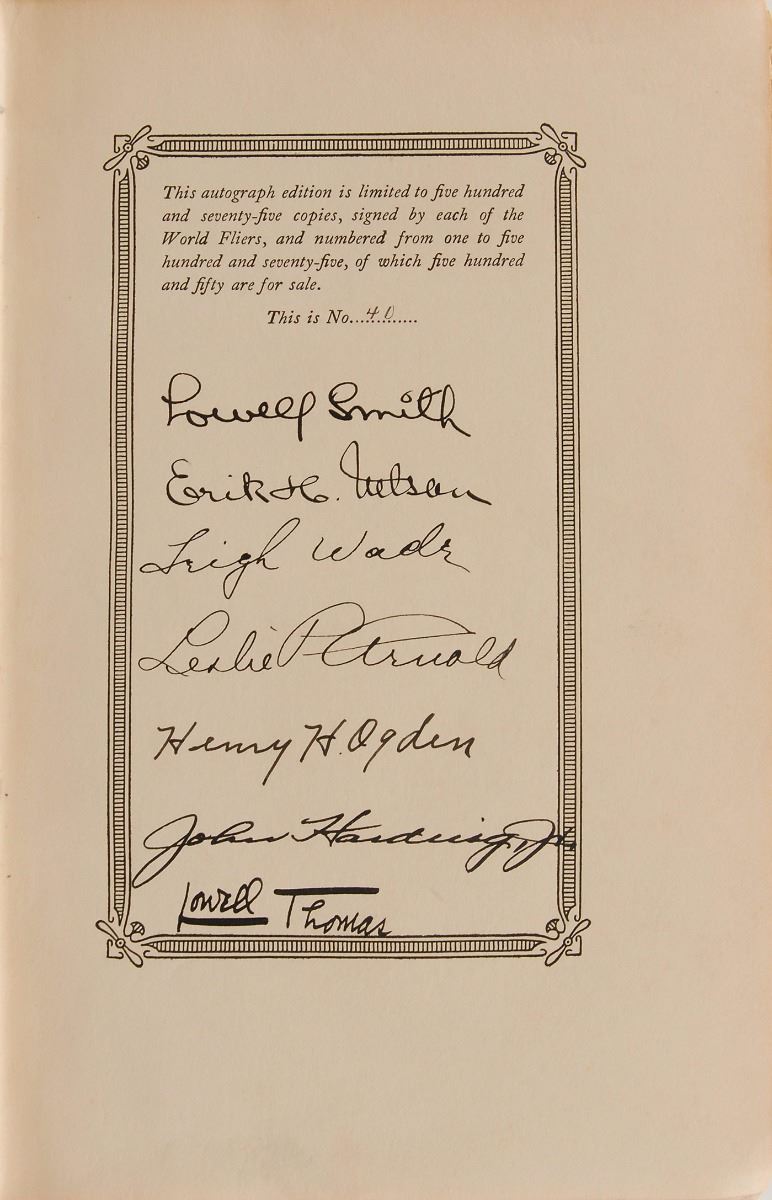 This autograph edition is limited to five hundred
and seventy-five copies, signed by each of the
World Fliers, and numbered from one to five
hundred and seventy-five, of which five hundred
and fifty are for sale.
This is No...40......
Lowell Smith
Erik H. Nelson
Leigh Wade
Leslie P Arnold
Henry H. Ogden
John Harding, Jr.
Lowell Thomas